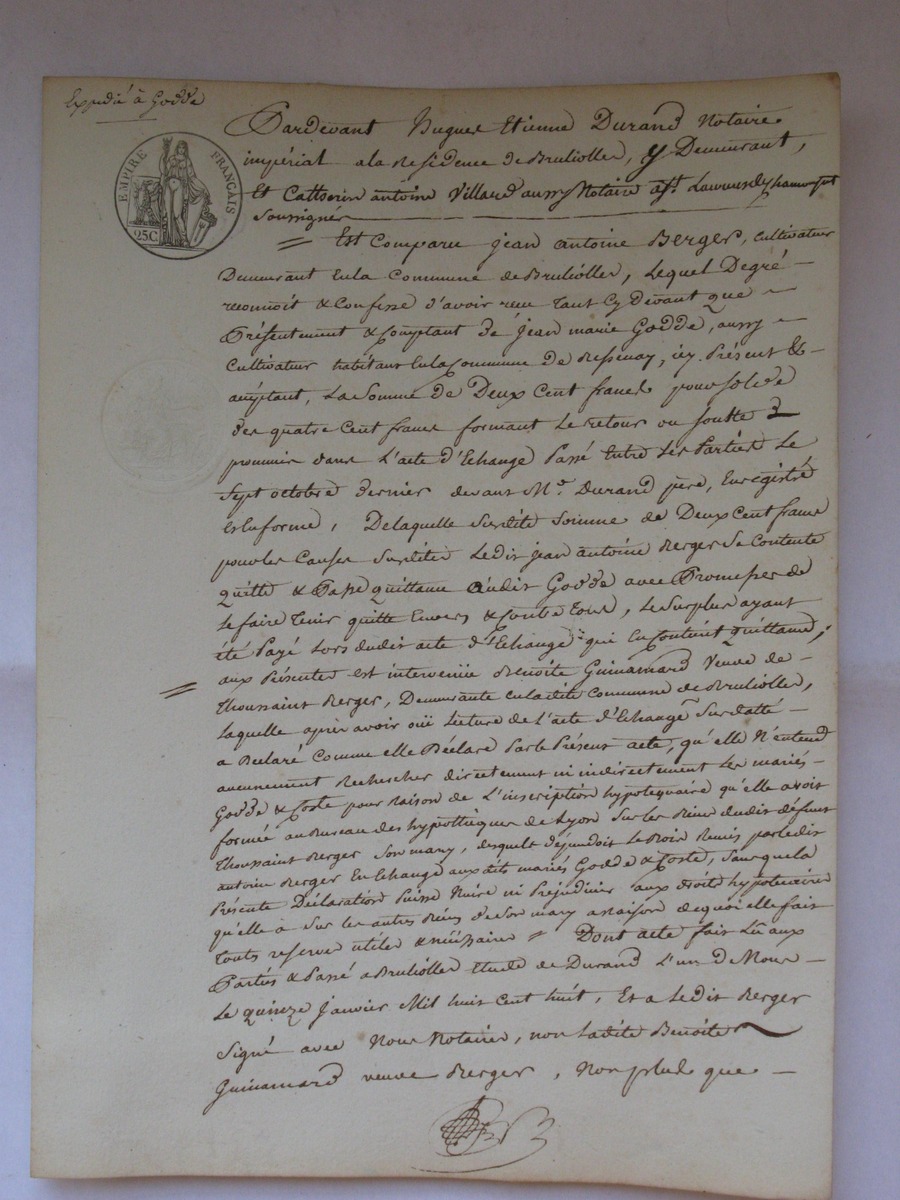 Expedié à Godde
EMPIRE FRANÇAIS
25C
Pardevant Hugues Etienne Durand Notaire
impérial a la Résidence de Brulioller, y Demeurant,
Et Catherin antoine Villard aussy Notaire
Soussignés
Est Comparu jean antoine Berger, Cultivateur
Demeurant en la Commune de Brulioller, Lequel Degré
reconnoit & Confesse d'avoir reçu tant Cy Devant que
Présentement & Comptant de jean marie Godde, aussy
Cultivateur habitant en la Commune de Ressenay, icy Présent &
acceptant, La Somme de Deux Cent francs pour solde
des quatre Cent francs formant Le retour ou soulte
promis dans L'acte d'Echange Passé Entre Les Parties Le
Sept octobre dernier devant Me. Durand père, Enregistré
et en forme, De laquelle Surditte Somme de Deux Cent francs
pour les Causes Surdittes Ledit jean antoine Berger Se Contente
quitte & Passe quittance audit Godde avec Promesses de
Le faire tenir quitte Envers & Contre tous, Le Surplus ayant
été Payé Lors dudit acte d'Echange qui En Contient quittance,
aux Présentes est intervenüe Benoite Guinamard Veuve de
Thoussaint Berger, Demeurante en la dite Commune de Brulioller,
Laquelle après avoir oüi Lecture de L'acte d'Echange Surdatté
a Déclaré Comme elle Déclare Par le Présent acte, qu'elle N'entend
aucunement Rechercher directement ni indirectement Les mariés
Godde & Coste pour raison de L'inscription hypotequaire qu'elle avoit
formée au Bureau des hypothèques de Lyon Sur Les Biens dudit défunt
Thoussaint Berger Son mary, desquels dépendoit Le Bois Remis par ledit
antoine Berger En Echange aux dits mariés Godde & Coste, Sans que la
Présente Déclaration Puisse Nuire ni Préjudicier aux droits hypotecaires
qu'elle a Sur les autres Biens de Son mary a raison de quoi elle fait
touts reserve utiles & nécessaires Dont acte fait Lu aux
Parties & Passé a Brulioller Etude de Durand L'un de Nous
Le quinze Janvier Mil huit Cent huit, Et a Ledit Berger
Signé avec Nous Notaires, non Ladite Benoite
Guinamard veuve Berger, Non plus que